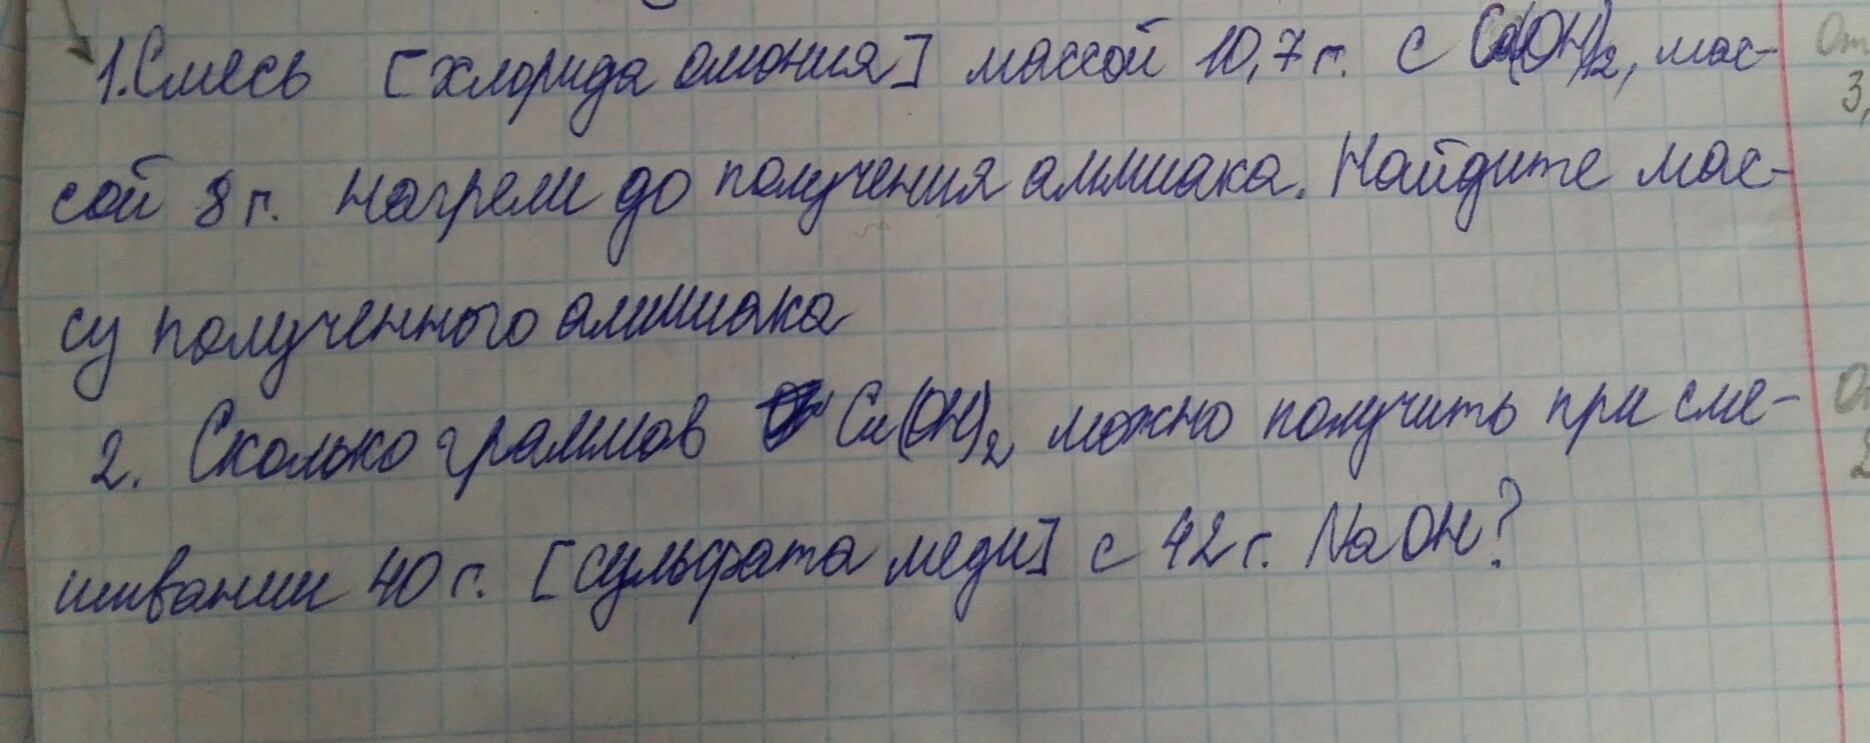 1. Смесь [хлорида амония] массой 10,7 г. с Ca(OH)2, мас-
сой 8 г. нагрели до получения аммиака. Найдите мас-
су полученного аммиака
2. Сколько граммов Cu(OH)2 можно получить при сме-
шивании 40 г. [сульфата меди] с 42 г. NaOH?
3,